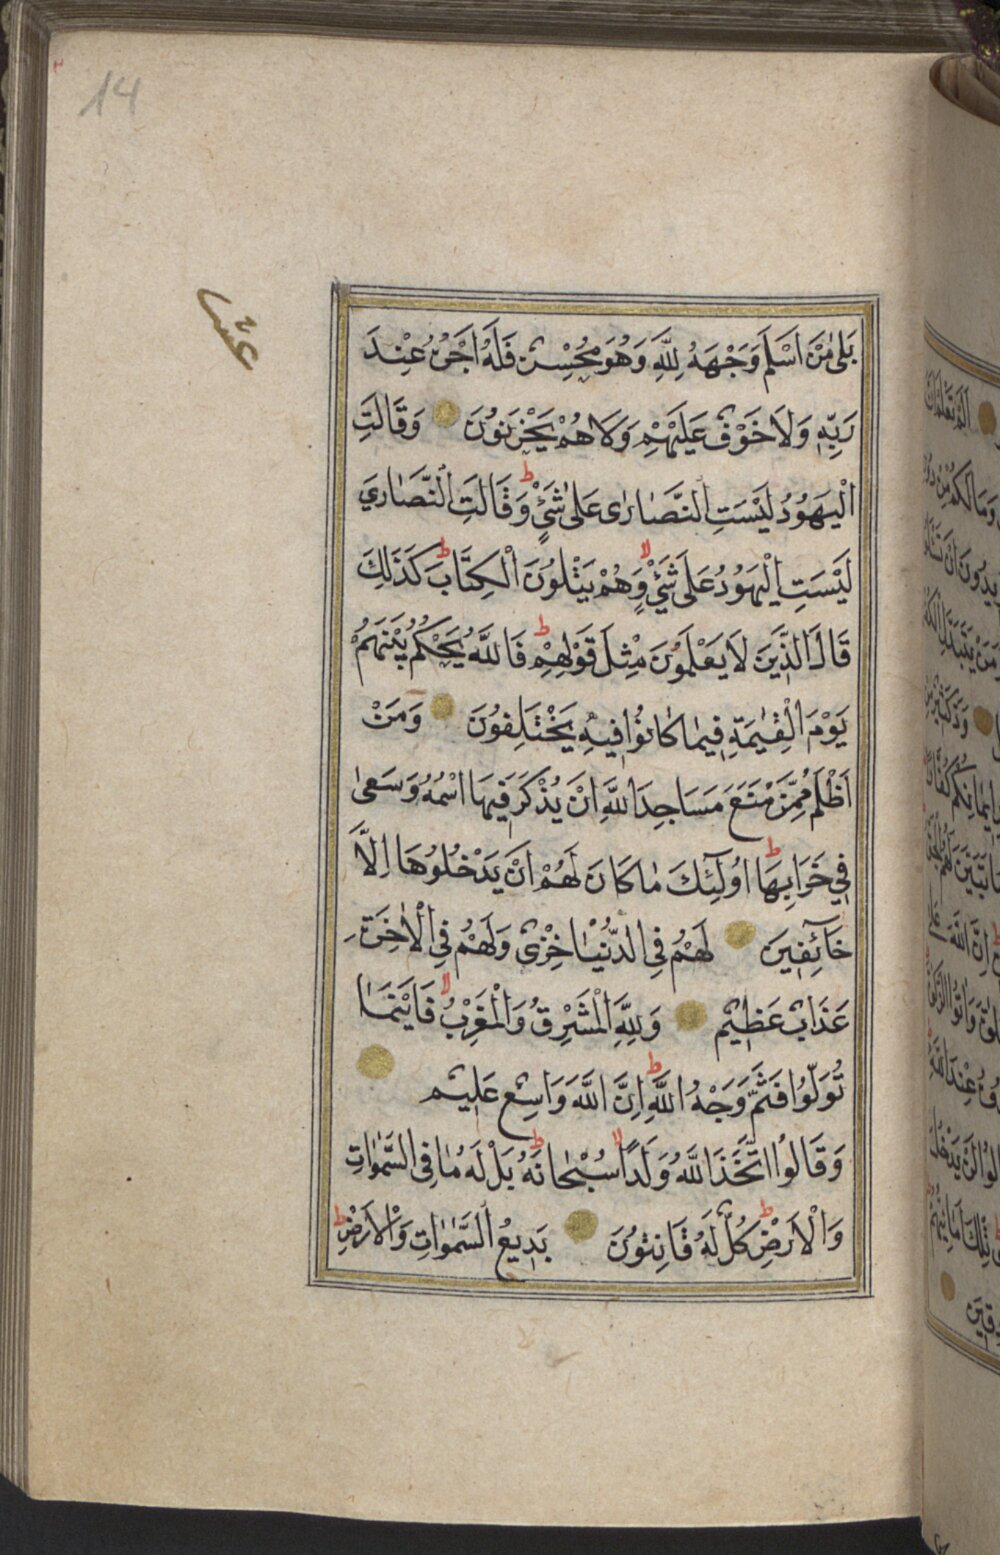 14
عشر
بَلٰى مَنْ اَسْلَمَ وَجْهَهُ لِلّٰهِ وَهُوَ مُحْسِنٌ فَلَهُ اَجْرُهُ عِنْدَ
رَبِّهِ وَلَا خَوْفٌ عَلَيْهِمْ وَلَا هُمْ يَحْزَنُونَ وَقَالَتِ
الْيَهُودُ لَيْسَتِ النَّصَارٰى عَلٰى شَيْءٍ ط وَقَالَتِ النَّصَارٰي
لَيْسَتِ الْيَهُودُ عَلٰى شَيْءٍ لا وَهُمْ يَتْلُونَ الْكِتَابَ ط كَذٰلِكَ
قَالَ الَّذِينَ لَا يَعْلَمُونَ مِثْلَ قَوْلِهِمْ ط فَاللّٰهُ يَحْكُمُ بَيْنَهُمْ
يَوْمَ الْقِيٰمَةِ فِيمَا كَانُوا فِيهِ يَخْتَلِفُونَ وَمَنْ
اَظْلَمُ مِمَّنْ مَنَعَ مَسَاجِدَ اللّٰهِ اَنْ يُذْكَرَ فِيهَا اسْمُهُ وَسَعٰى
فِي خَرَابِهَا ط اُولٰٓئِكَ مَا كَانَ لَهُمْ اَنْ يَدْخُلُوهَا اِلَّا
خَآئِفِينَ لَهُمْ فِي الدُّنْيَا خِزْىٌ وَلَهُمْ فِي الْاٰخِرَةِ
عَذَابٌ عَظِيمٌ وَلِلّٰهِ الْمَشْرِقُ وَالْمَغْرِبُ لا فَاَيْنَمَا
تُوَلُّوا فَثَمَّ وَجْهُ اللّٰهِ ط اِنَّ اللّٰهَ وَاسِعٌ عَلِيمٌ
وَقَالُوا اتَّخَذَ اللّٰهُ وَلَدًا لا سُبْحَانَهُ ط بَلْ لَهُ مَا فِي السَّمٰوَاتِ
وَالْاَرْضِ ط كُلٌّ لَهُ قَانِتُونَ بَدِيعُ السَّمٰوَاتِ وَالْاَرْضِ ط